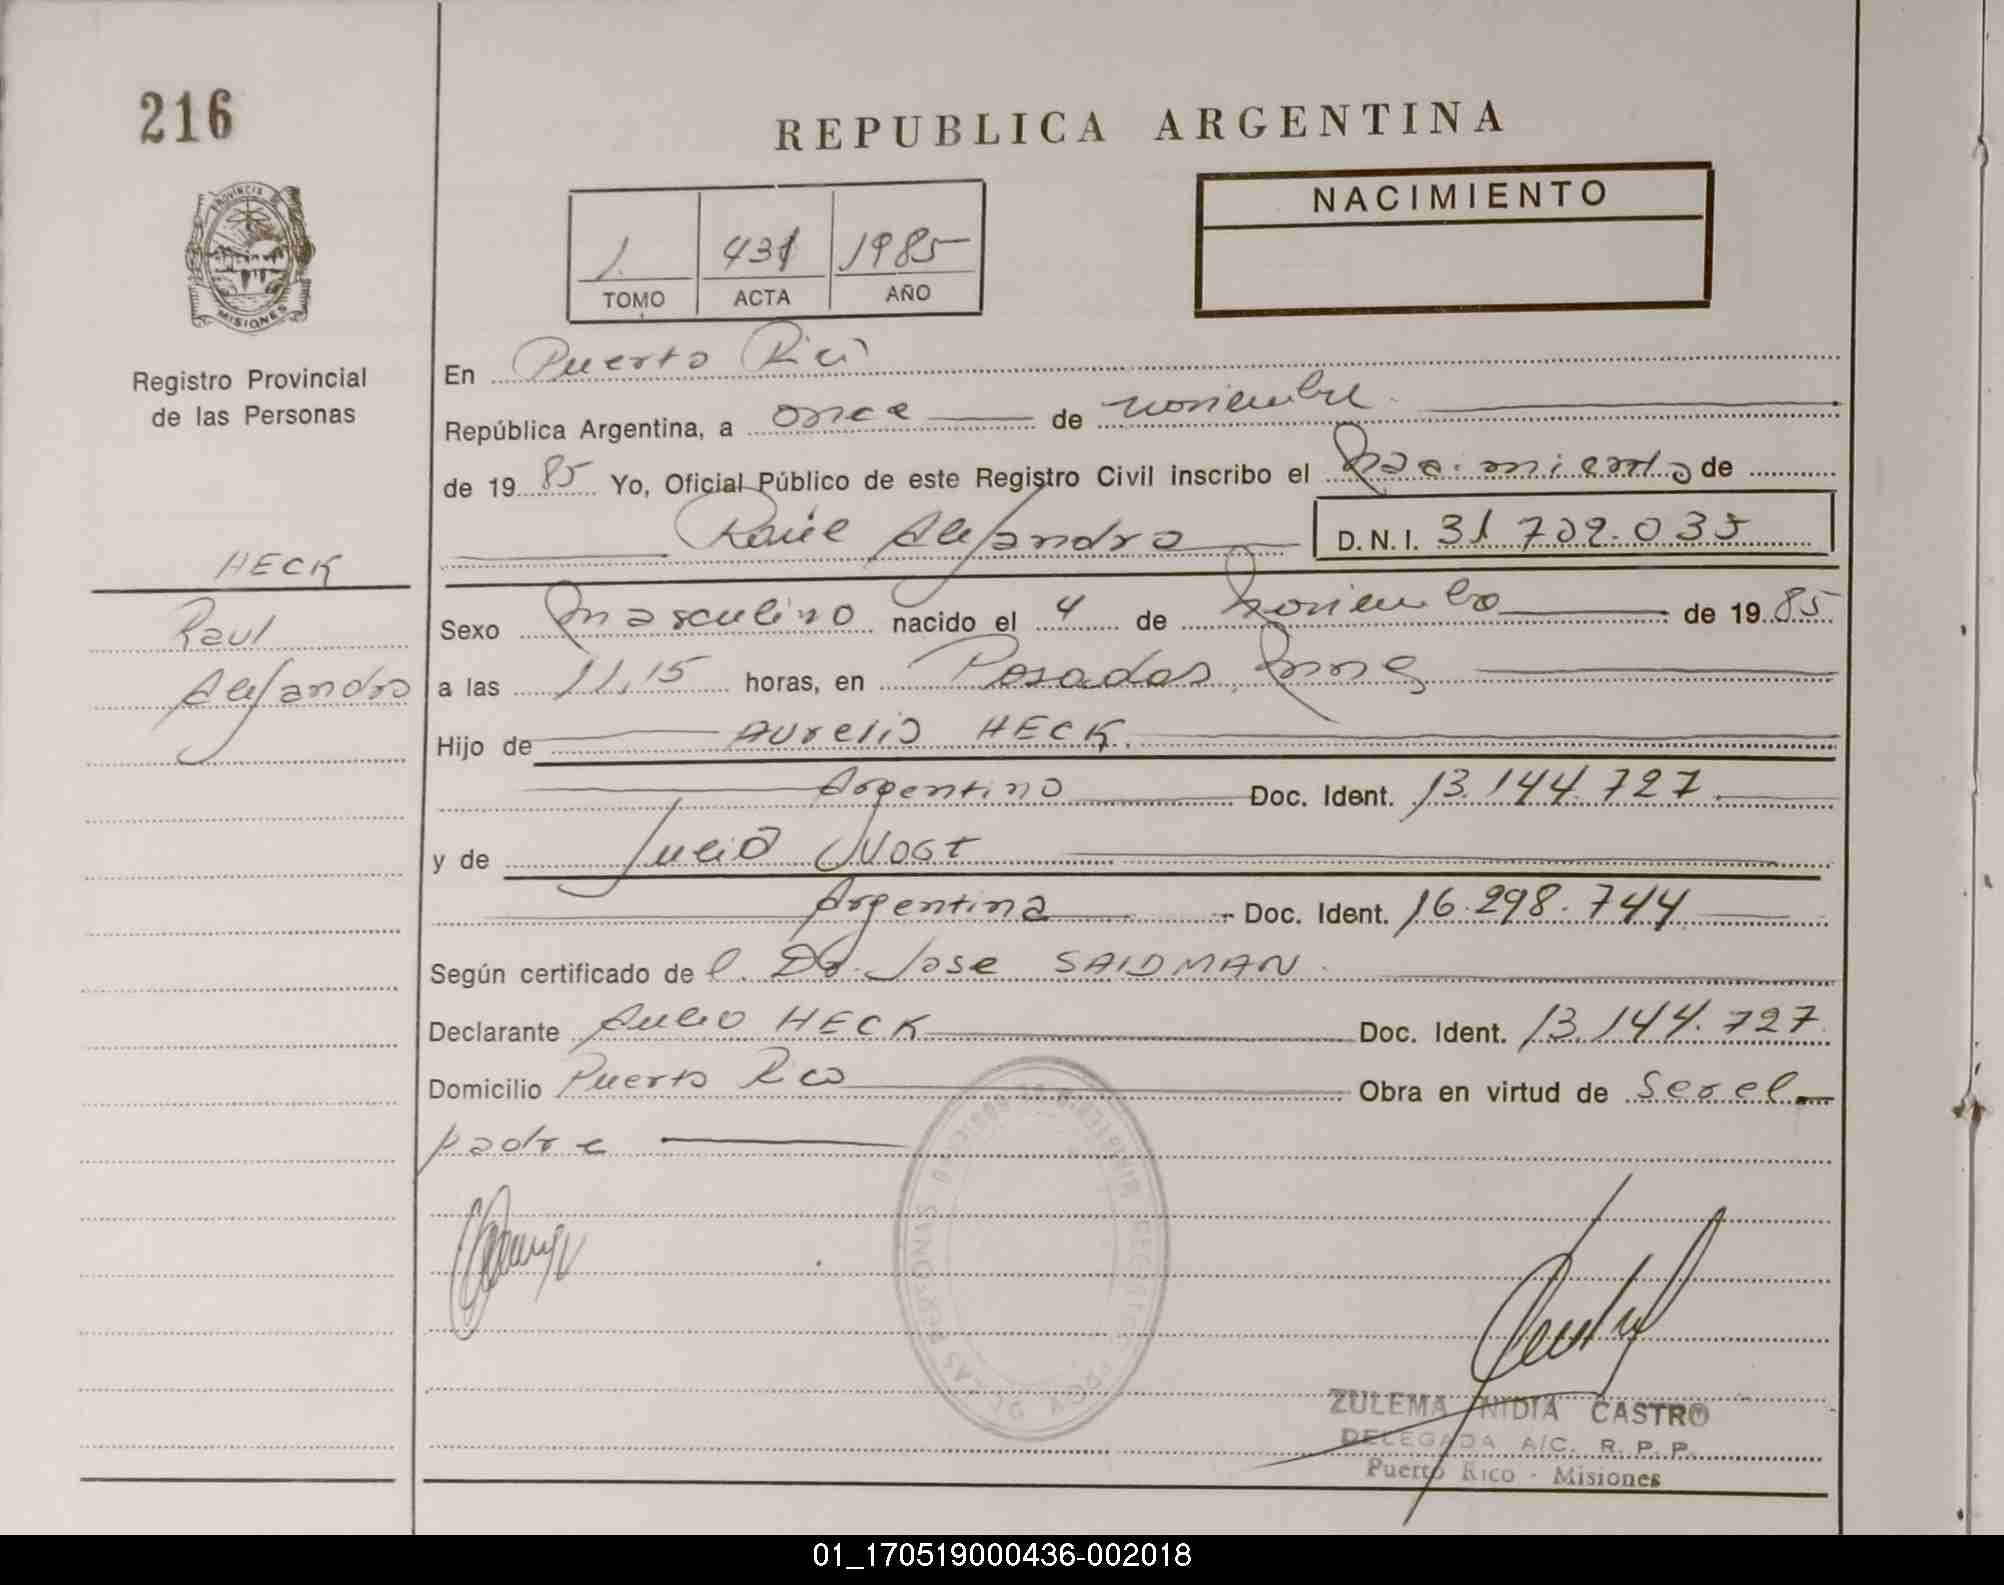 216
REPUBLICA ARGENTINA
PROVINCIA DE
MISIONES
Registro Provincial
de las Personas
1. 431 1985
TOMO ACTA AÑO
NACIMIENTO
En Puerto Rico
República Argentina, a once de noviembre
de 19 85 Yo, Oficial Público de este Registro Civil inscribo el Nacimiento de
Raúl Alejandro D.N.I. 31.702.035
HECK
Raul
Alejandro
Sexo masculino nacido el 4 de noviembre de 19 85
a las 11,15 horas, en Posadas, Mnes
Hijo de Aurelio HECK.
Argentino Doc. Ident. 13.144.727.
y de Julia VOGT
Argentina Doc. Ident. 16.298.744
Según certificado de l. Dr. Jose SAIDMAN.
Declarante HECK Doc. Ident. 13.144.727.
Domicilio Puerto Rico Obra en virtud de Ser el
padre
ZULEMA NIDIA CASTRO
DELEGADA A/C. R. P. P.
Puerto Rico - Misiones
01_170519000436-002018